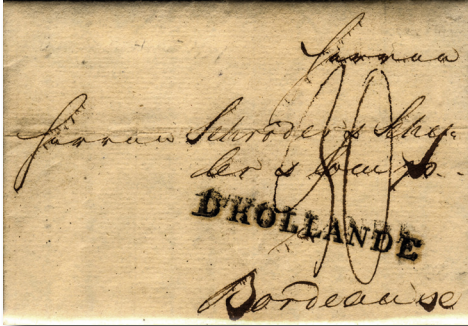 Herren
Herren Schröder & Schy=
ler & Comp.
30
D'HOLLANDE
Bordeaux